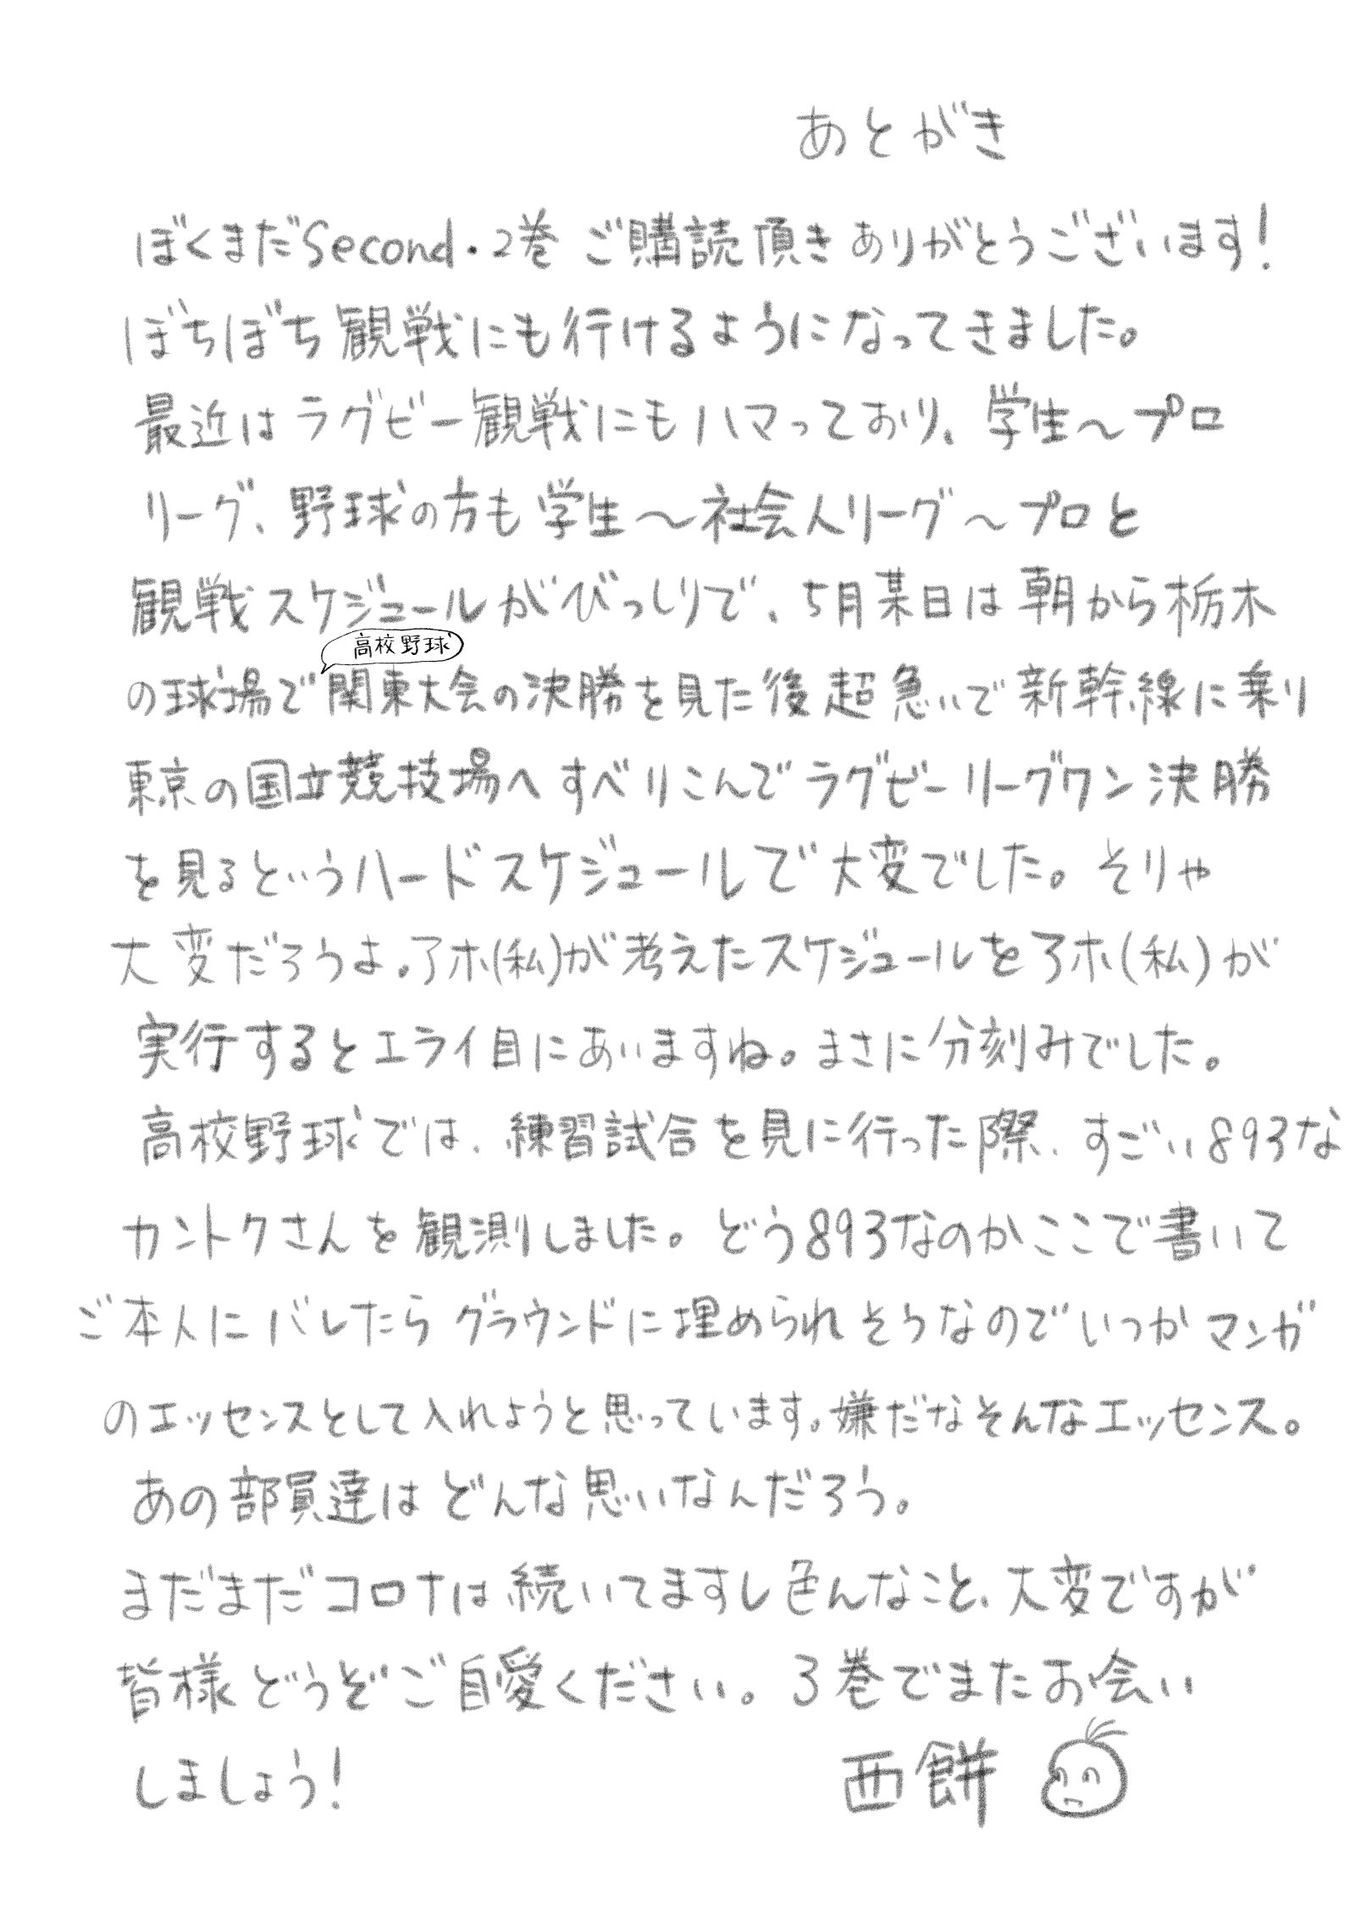 あとがき
ぼくまだSecond・2巻 ご購読頂きありがとうございます!
ぼちぼち観戦にも行けるようになってきました。
最近はラグビー観戦にもハマっており、学生〜プロ
リーグ、野球の方も学生〜社会人リーグ〜プロと
観戦スケジュールがびっしりで、5月某日は朝から栃木
高校野球
の球場で関東大会の決勝を見た後超急いで新幹線に乗り
東京の国立競技場へすべりこんでラグビーリーグワン決勝
を見るというハードスケジュールで大変でした。そりゃ
大変だろうよ。アホ(私)が考えたスケジュールをアホ(私)が
実行するとエライ目にあいますね。まさに分刻みでした。
高校野球では、練習試合を見に行った際、すごい893な
カントクさんを観測しました。どう893なのかここで書いて
ご本人にバレたらグラウンドに埋められそうなのでいつかマンガ
のエッセンスとして入れようと思っています。嫌だなそんなエッセンス。
あの部員達はどんな思いなんだろう。
まだまだコロナは続いてますし色んなこと、大変ですが
皆様どうぞご自愛ください。3巻でまたお会い
しましょう!
西餅